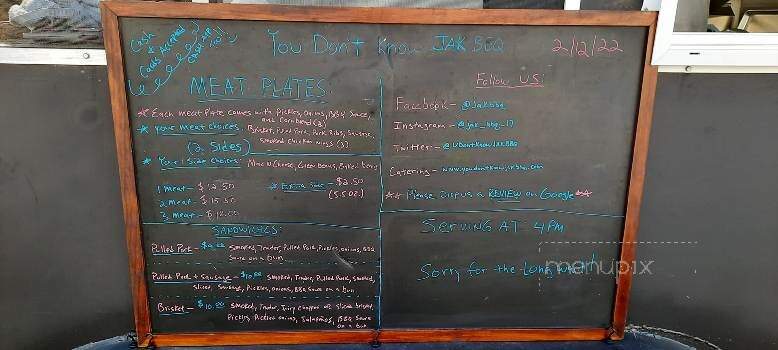 Cash
&
Cards Accepted
You Don't Know JAK BBQ
2/12/22
MEAT PLATES:
* Each meat Plate comes with pickles, onions, BBQ Sauce,
and Cornbread (2)
* Your meat choices: Brisket, Pulled Pork, Pork Ribs, Sausage,
(2 Sides) Smoked chicken wings (3)
* Your Side choices: Mac N Cheese, Green beans, Baked beans
1 meat - $12.50
2 meat - $15.50
3 meat - $18.00
* Extra Side - $2.50
(5.5 oz.)
SANDWICHES:
Pulled Pork - Smoked, Tender, Pulled Pork, Pickles, onions, BBQ
Sauce on a bun
Pulled Pork + Sausage - $10.00 Smoked, Tender, Pulled Pork, Smoked,
Sliced, Sausage, Pickles, onions, BBQ Sauce on a bun
Brisket - $10.00 Smoked, Tender, Juicy chopped or sliced brisket,
Pickles, Pickled onions, Jalapeños, BBQ Sauce
on a bun
Follow US:
Facebook - @jakbbq
Instagram - @jak_bbq_17
Twitter - @UDontKnowJAKBBQ
Catering - www.youdontknowjakbbq.com
** Please drop us a REVIEW on Google **
SERVING AT 4PM
Sorry for the long wait!
menupix